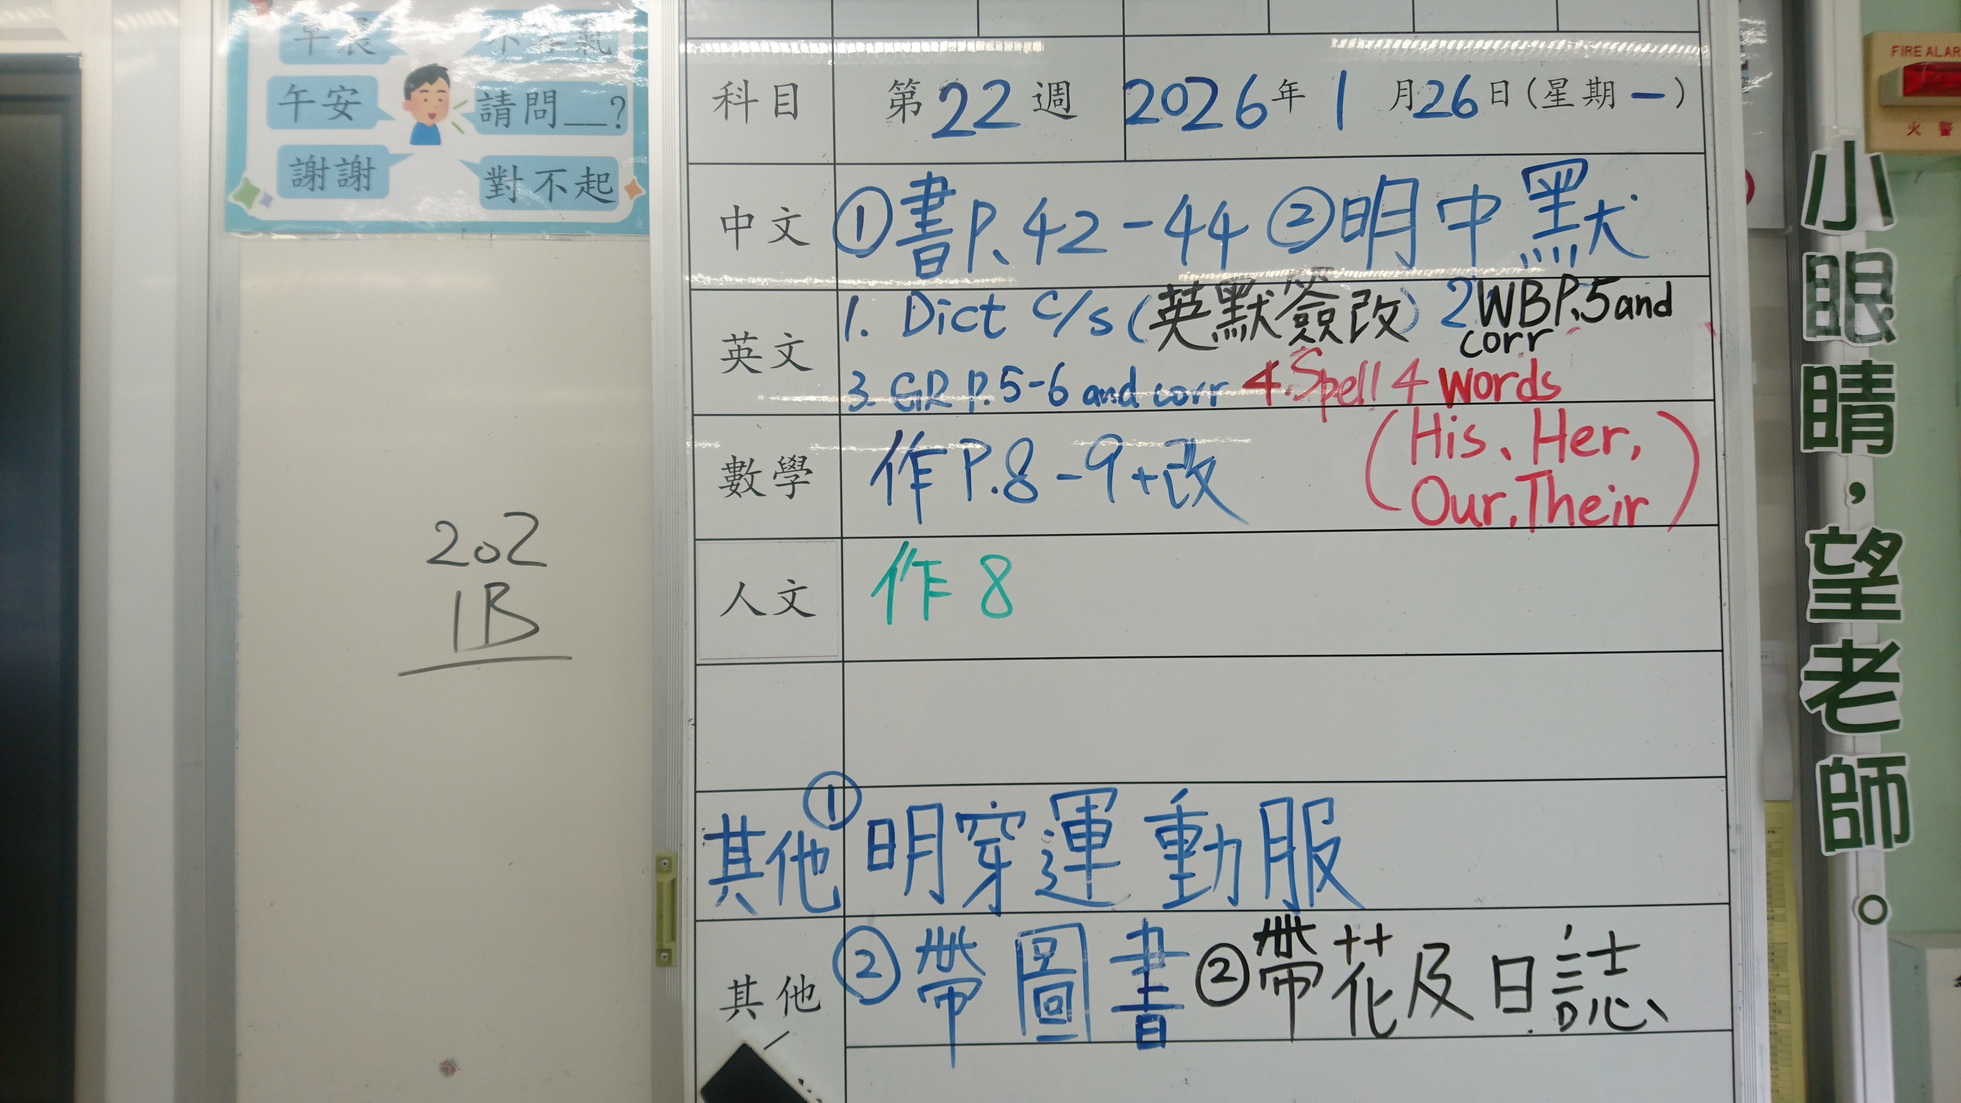 午安
請問__?
謝謝
對不起
202
1B
科目 第22週 2026年1月26日(星期一)
中文 ①書P.42-44 ②明中默
英文 1. Dict c/s (英默簽改) 2 WB P.5 and corr
3. GR P.5-6 and corr 4. Spell 4 words
(His、Her,
Our, Their)
數學 作P.8-9+改
人文 作8
其他 ①明穿運動服
其他 ②帶圖書 ②帶花及日誌
小眼睛，望老師。
FIRE ALAR
火警